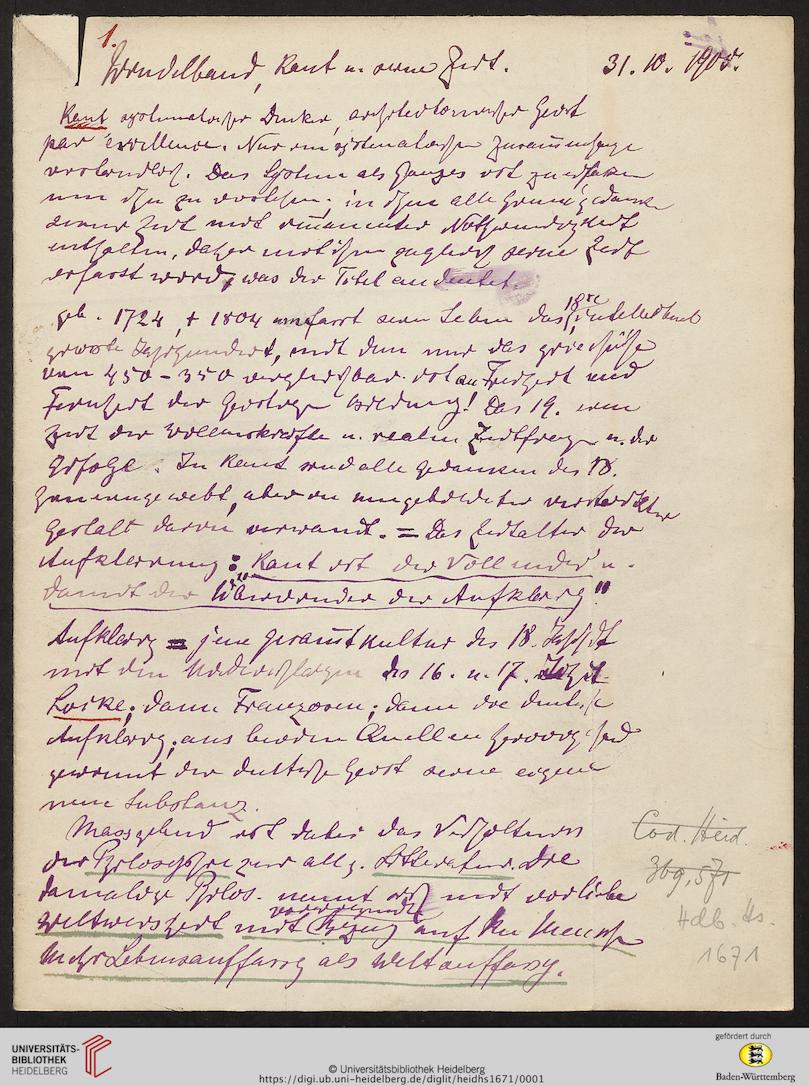 1.
Windelband, Kant u. seine Zeit. 31. 10. 1905.
Kant systematischer Denker, architektonischer Geist
par excellence. Nur im systematischen Zusammenhange
verständlich. Das System als Ganzes ist zu erfassen
um ihn zu verstehen; in ihm alle Grundgedanken
seiner Zeit mit immanenter Nothwendigkeit
enthalten, daher mit ihm zugleich seine Zeit
erfasst wird, was der Titel andeutet.
geb. 1724, † 1804 umfasst sein Leben das 18te, intellectuell
grösste Jahrhundert, mit dem nur das griechische
von 450-350 vergleichbar ist an Freiheit und
Feinheit der geistigen Bildung! Das 19. eine
Zeit der Willenskräfte u. realen Zeitfragen u. der
Erfolge. In Kant sind alle Gedanken des 18.
hineingewebt, aber in umgebildeter verstärkter
Gestalt darin verwandt. = Das Zeitalter der
Aufklärung: "Kant ist der Vollender u.
damit der Überwinder der Aufklärg."
Aufklärg = jene Gesamtkultur des 18. Jahrhdt
mit den des 16. u. 17. Jhdt
Locke; dann Franzosen; dann die deutsche
Aufklärg; aus beiden Quellen
gewinnt der deutsche Geist seine eigene
neue Substanz.
Massgebend ist dabei das Verhältniss
der Philosophie zur allg. Litteratur. Die
damalige Philos. nennt sich mit Vorliebe
Weltweisheit mit Bezug auf den Menschen
Mehr Lebensauffassg als Weltauffassg.
Cod. Heid.
369,571
Hdb. Hs.
1671
UNIVERSITÄTS-
BIBLIOTHEK
HEIDELBERG
© Universitätsbibliothek Heidelberg
https://digi.ub.uni-heidelberg.de/diglit/heidhs1671/0001
gefördert durch
Baden-Württemberg